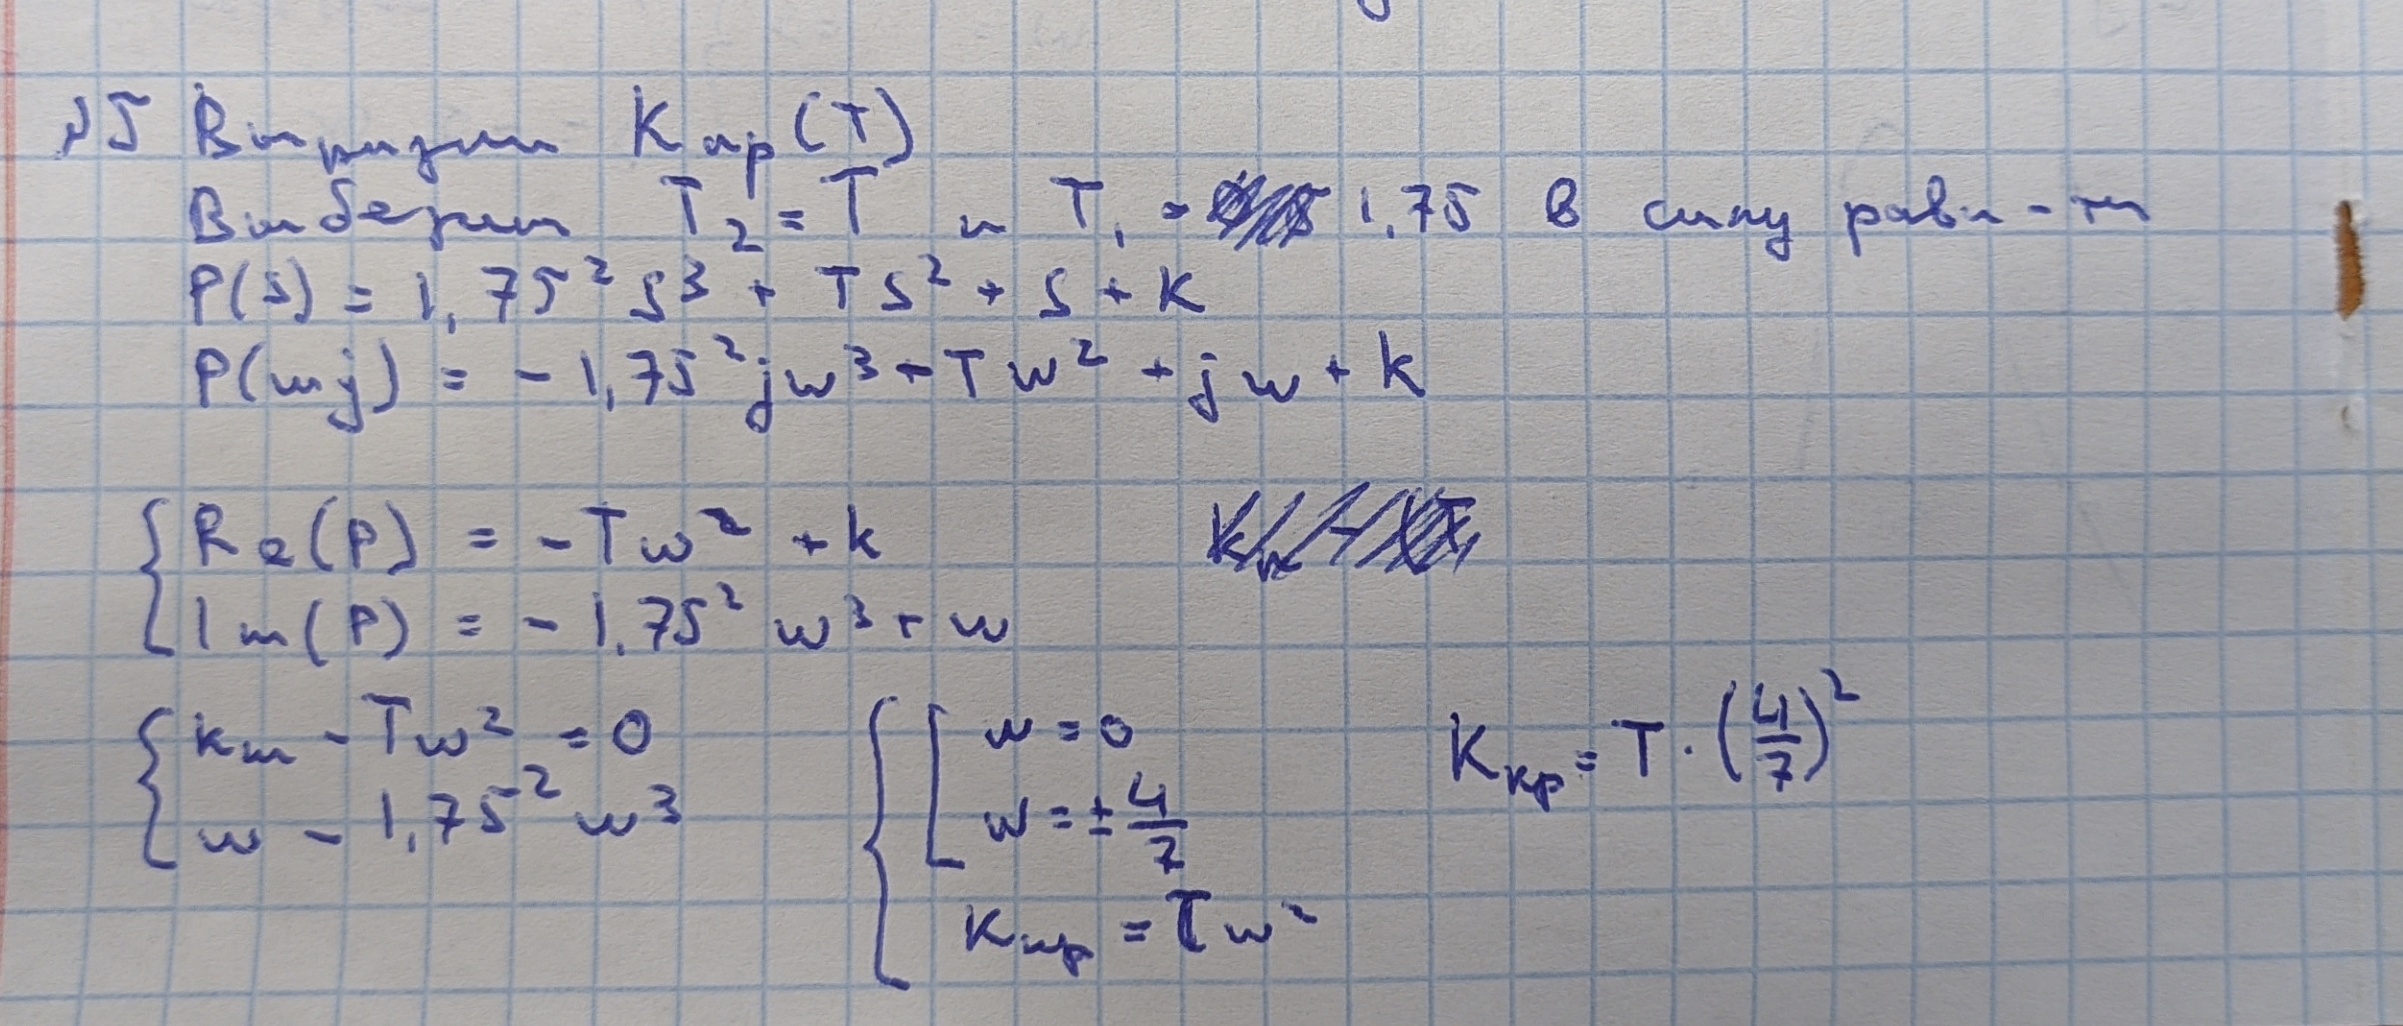 №5 Выразим Kкр(T)
Выберем T₂ = T и T₁ = 1,75 в силу рави-ти
P(s) = 1,75² s³ + Ts² + s + K
P(wj) = -1,75² jw³ - Tw² + jw + k
{ Re(P) = -Tw² + k
{ Im(P) = -1,75² w³ + w
{ kкр - Tw² = 0
{ w - 1,75² w³
{ [ w = 0
[ w = ± 4/7
Kкр = Tw²
Kкр = T · (4/7)²